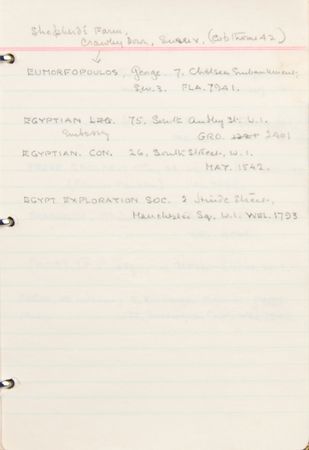 Shepherds Farm,
Crawley Down, Sussex, (Copthorne 42)
EUMORFOPOULOS, George 7. Chelsea Embankment,
S.W.3. FLA. 7941.
EGYPTIAN LEG. 75, South Audley St. W.1.
Embassy GRO. 2401
EGYPTIAN. CON. 26, South Street, W.1.
MAY. 1542.
EGYPT. EXPLORATION SOC. 2 Hinde Street,
Manchester Sq. W.1. WEL. 1793